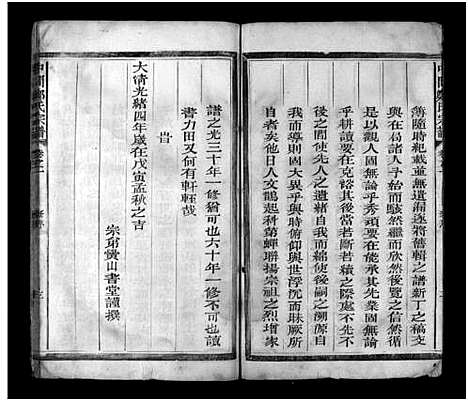 簿隨時紀載並無遺漏逐將舊輯之譜新丁之稿交
與在局諸人予始而駭然繼而欣然後覽之信然循
乎觀人固無論乎秀頑要在能承其先業國無論
乎耕讀要在克裕其後當若斷若續之際處不先不
後之間使先人之遺緒自我而綿使後嗣之溯源自
我而導則固大異乎與時俯仰與世浮沉而昧厥所
自者矣他日人文鵲起科第蟬聯揚宗祖之烈增家
譜之光三十年一修者可也六十年一修不可也讀
書力田又何有軒輊哉
旹
大清光緒四年歲在戊寅孟秋之吉
宗弟 山書堂謹撰
氏宗譜